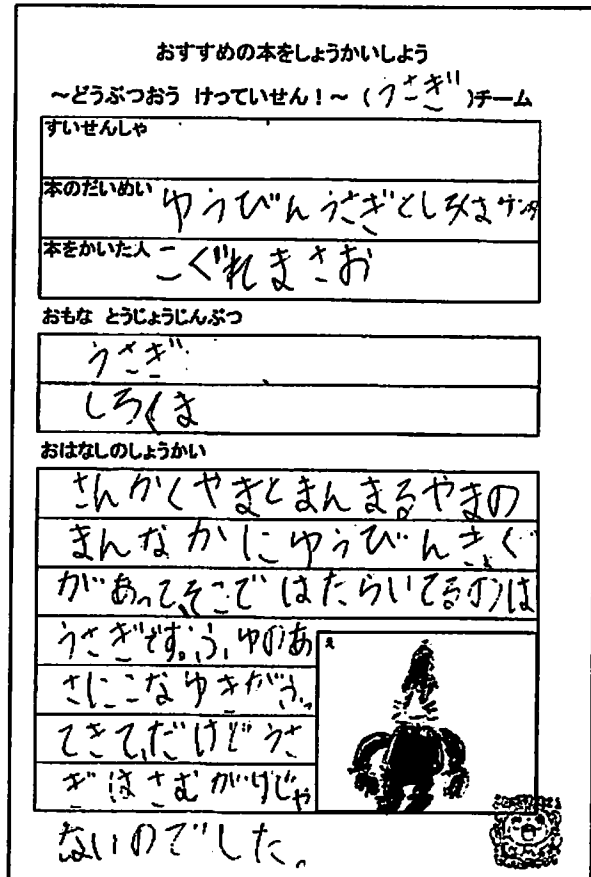 おすすめの本をしょうかいしよう
～どうぶつおう けっていせん！～（うさぎ）チーム
すいせんしゃ
本のだいめい ゆうびんうさぎとしろくまサンタ
本をかいた人 こぐれまさお
おもな とうじょうじんぶつ
うさぎ
しろくま
おはなしのしょうかい
さんかくやまとまんまるやまの
まんなかにゆうびんきょく
があって、そこではたらいてるのは
うさぎです。ふゆのあ
さにこなゆきがふっ
てきて、だけどうさ
ぎはさむがりじゃ
ないのでした。
え